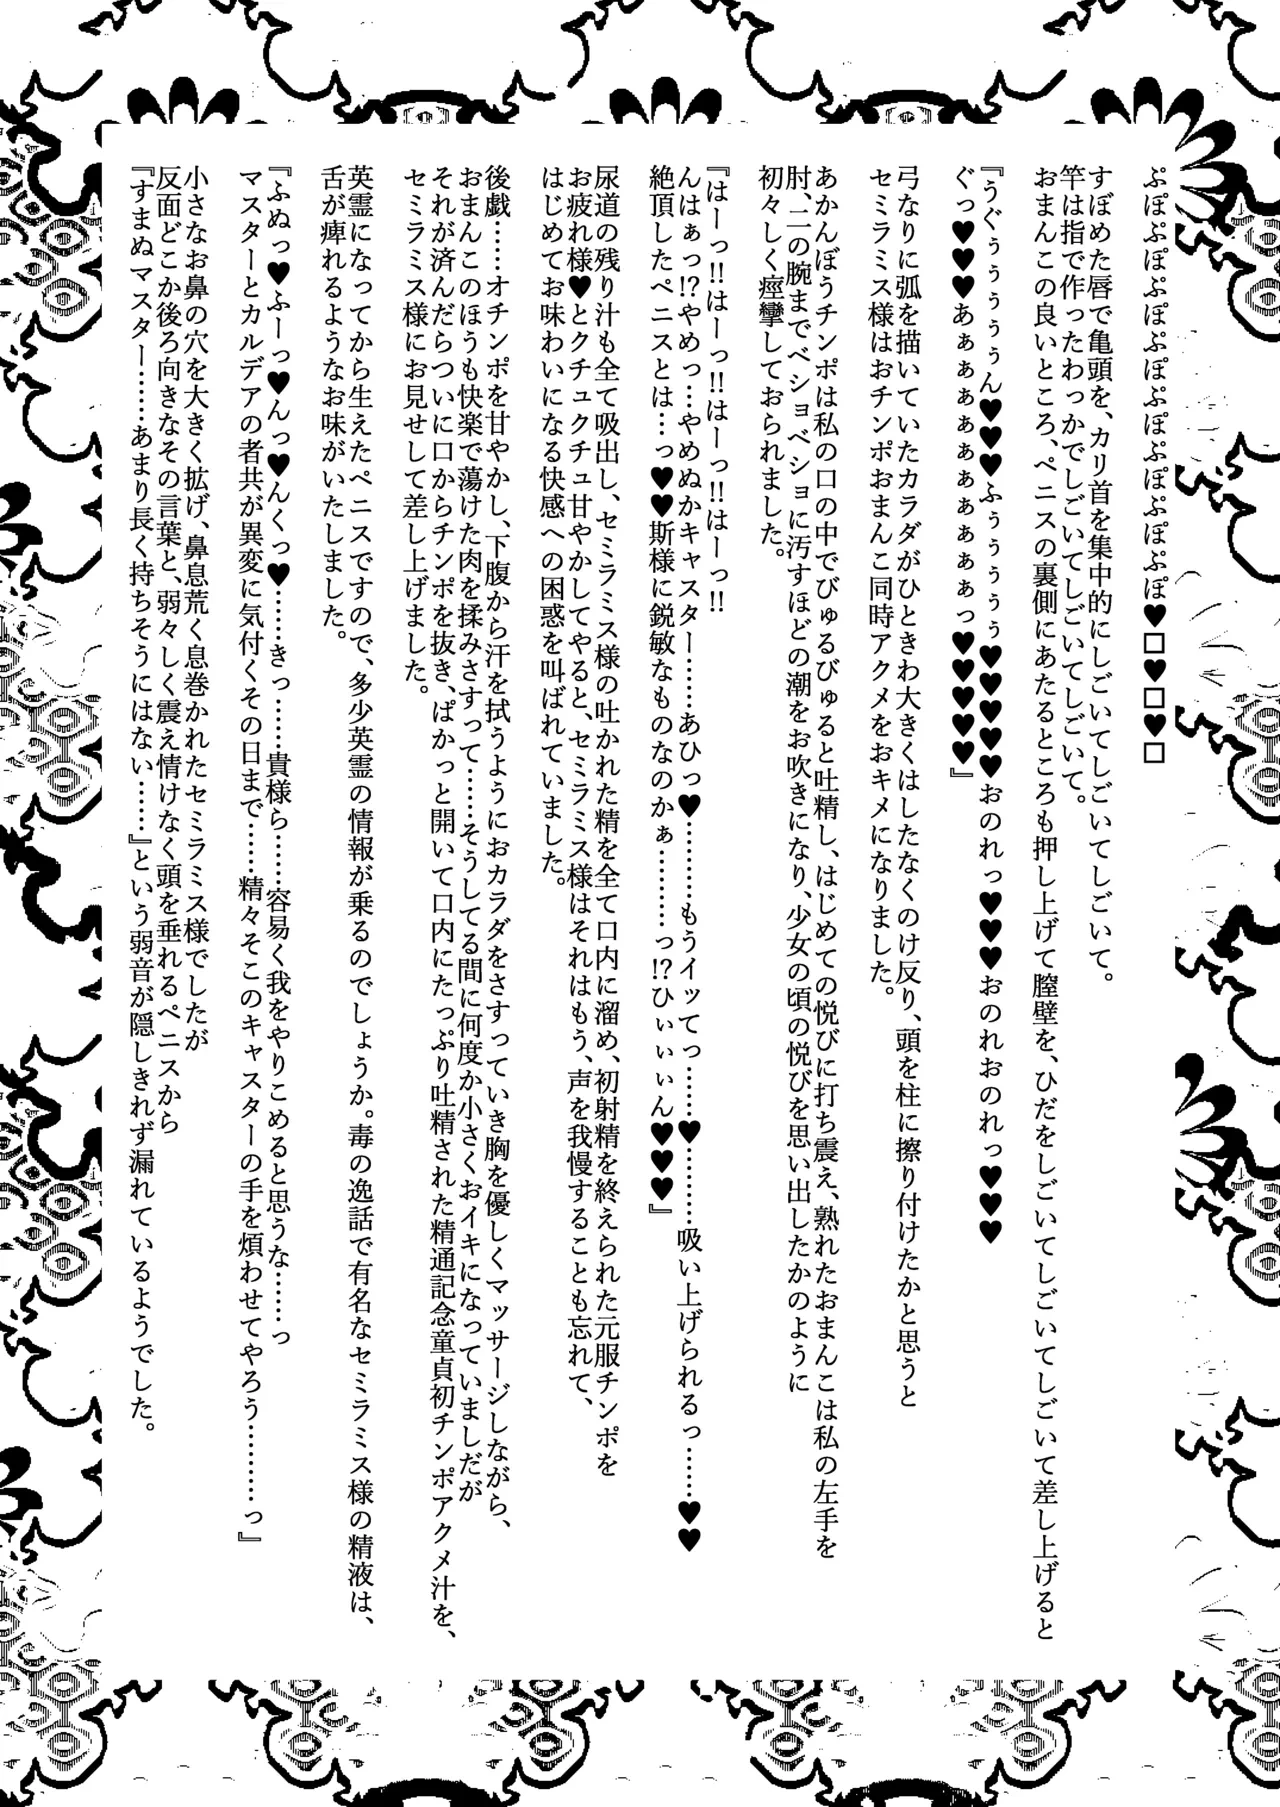 ぷぽぷぽぷぽぷぽぷぽぷぽぷぽ♥□♥□♥□
すぼめた唇で亀頭を、カリ首を集中的にしごいてしごいてしごいて。
竿は指で作ったわっかでしごいてしごいてしごいて。
おまんこの良いところ、ペニスの裏側にあたるところも押し上げて膣壁を、ひだをしごいてしごいてしごいて差し上げると
『うぐぅぅぅぅん♥♥♥ふぅぅぅぅぅ♥♥♥♥♥おのれっ♥♥♥おのれおのれっ♥♥♥
ぐっ♥♥♥あぁぁぁぁぁぁぁぁぁっ♥♥♥♥♥』
弓なりに弧を描いていたカラダがひときわ大きくはしたなくのけ反り、頭を柱に擦り付けたかと思うと
セミラミス様はおチンポおまんこ同時アクメをおキメになりました。
あかんぼうチンポは私の口の中でびゅるびゅると吐精し、はじめての悦びに打ち震え、熟れたおまんこは私の左手を
肘、二の腕までベショベショに汚すほどの潮をお吹きになり、少女の頃の悦びを思い出したかのように
初々しく痙攣しておられました。
『はーっ!!はーっ!!はーっ!!はーっ!!
んはぁっ!?やめっ…やめぬかキャスター……あひっ♥…………もうイッてっ……♥…………吸い上げられるっ……♥♥
絶頂したペニスとは…っ♥♥斯様に鋭敏なものなのかぁ…………っ!?ひぃぃぃん♥♥♥』
尿道の残り汁も全て吸出し、セミラミス様の吐かれた精を全て口内に溜め、初射精を終えられた元服チンポを
お疲れ様♥とクチュクチュ甘やかしてやると、セミラミス様はそれはもう、声を我慢することも忘れて、
はじめてお味わいになる快感への困惑を叫ばれていました。
後戯……オチンポを甘やかし、下腹から汗を拭うようにおカラダをさすっていき胸を優しくマッサージしながら、
おまんこのほうも快楽で蕩けた肉を揉みさすって……そうしてる間に何度か小さくおイキになっていましだが
それが済んだらついに口からチンポを抜き、ぱかっと開いて口内にたっぷり吐精された精通記念童貞初チンポアクメ汁を、
セミラミス様にお見せして差し上げました。
英霊になってから生えたペニスですので、多少英霊の情報が乗るのでしょうか。毒の逸話で有名なセミラミス様の精液は、
舌が痺れるようなお味がいたしました。
『ふぬっ♥ふーっ♥んっ♥んくっ♥……きっ……貴様ら……容易く我をやりこめると思うな……っ
マスターとカルデアの者共が異変に気付くその日まで……精々そこのキャスターの手を煩わせてやろう…………っ』
小さなお鼻の穴を大きく拡げ、鼻息荒く息巻かれたセミラミス様でしたが
反面どこか後ろ向きなその言葉と、弱々しく震え情けなく頭を垂れるペニスから
『すまぬマスター……あまり長く持ちそうにはない……』という弱音が隠しきれず漏れているようでした。